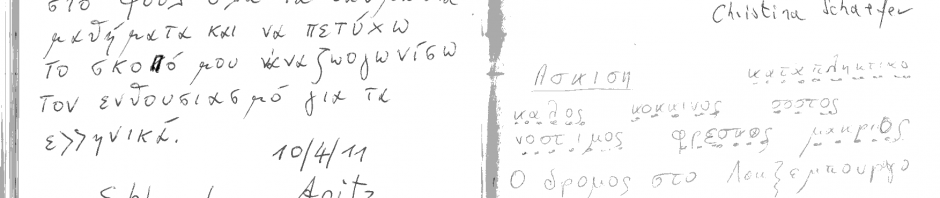 μαθήματα και να πετύχω
το σκοπό μου να αναζωογωνίσω
τον ενθουσιασμό για τα
ελληνικά.
10/4/11
Christina Schaefer
Ασκιση καταπληκτικο
καλος κοκκινος ζεστος
νοστιμος φρεσκος μακριος
Ο δρομος στο Λουξεμπουργο